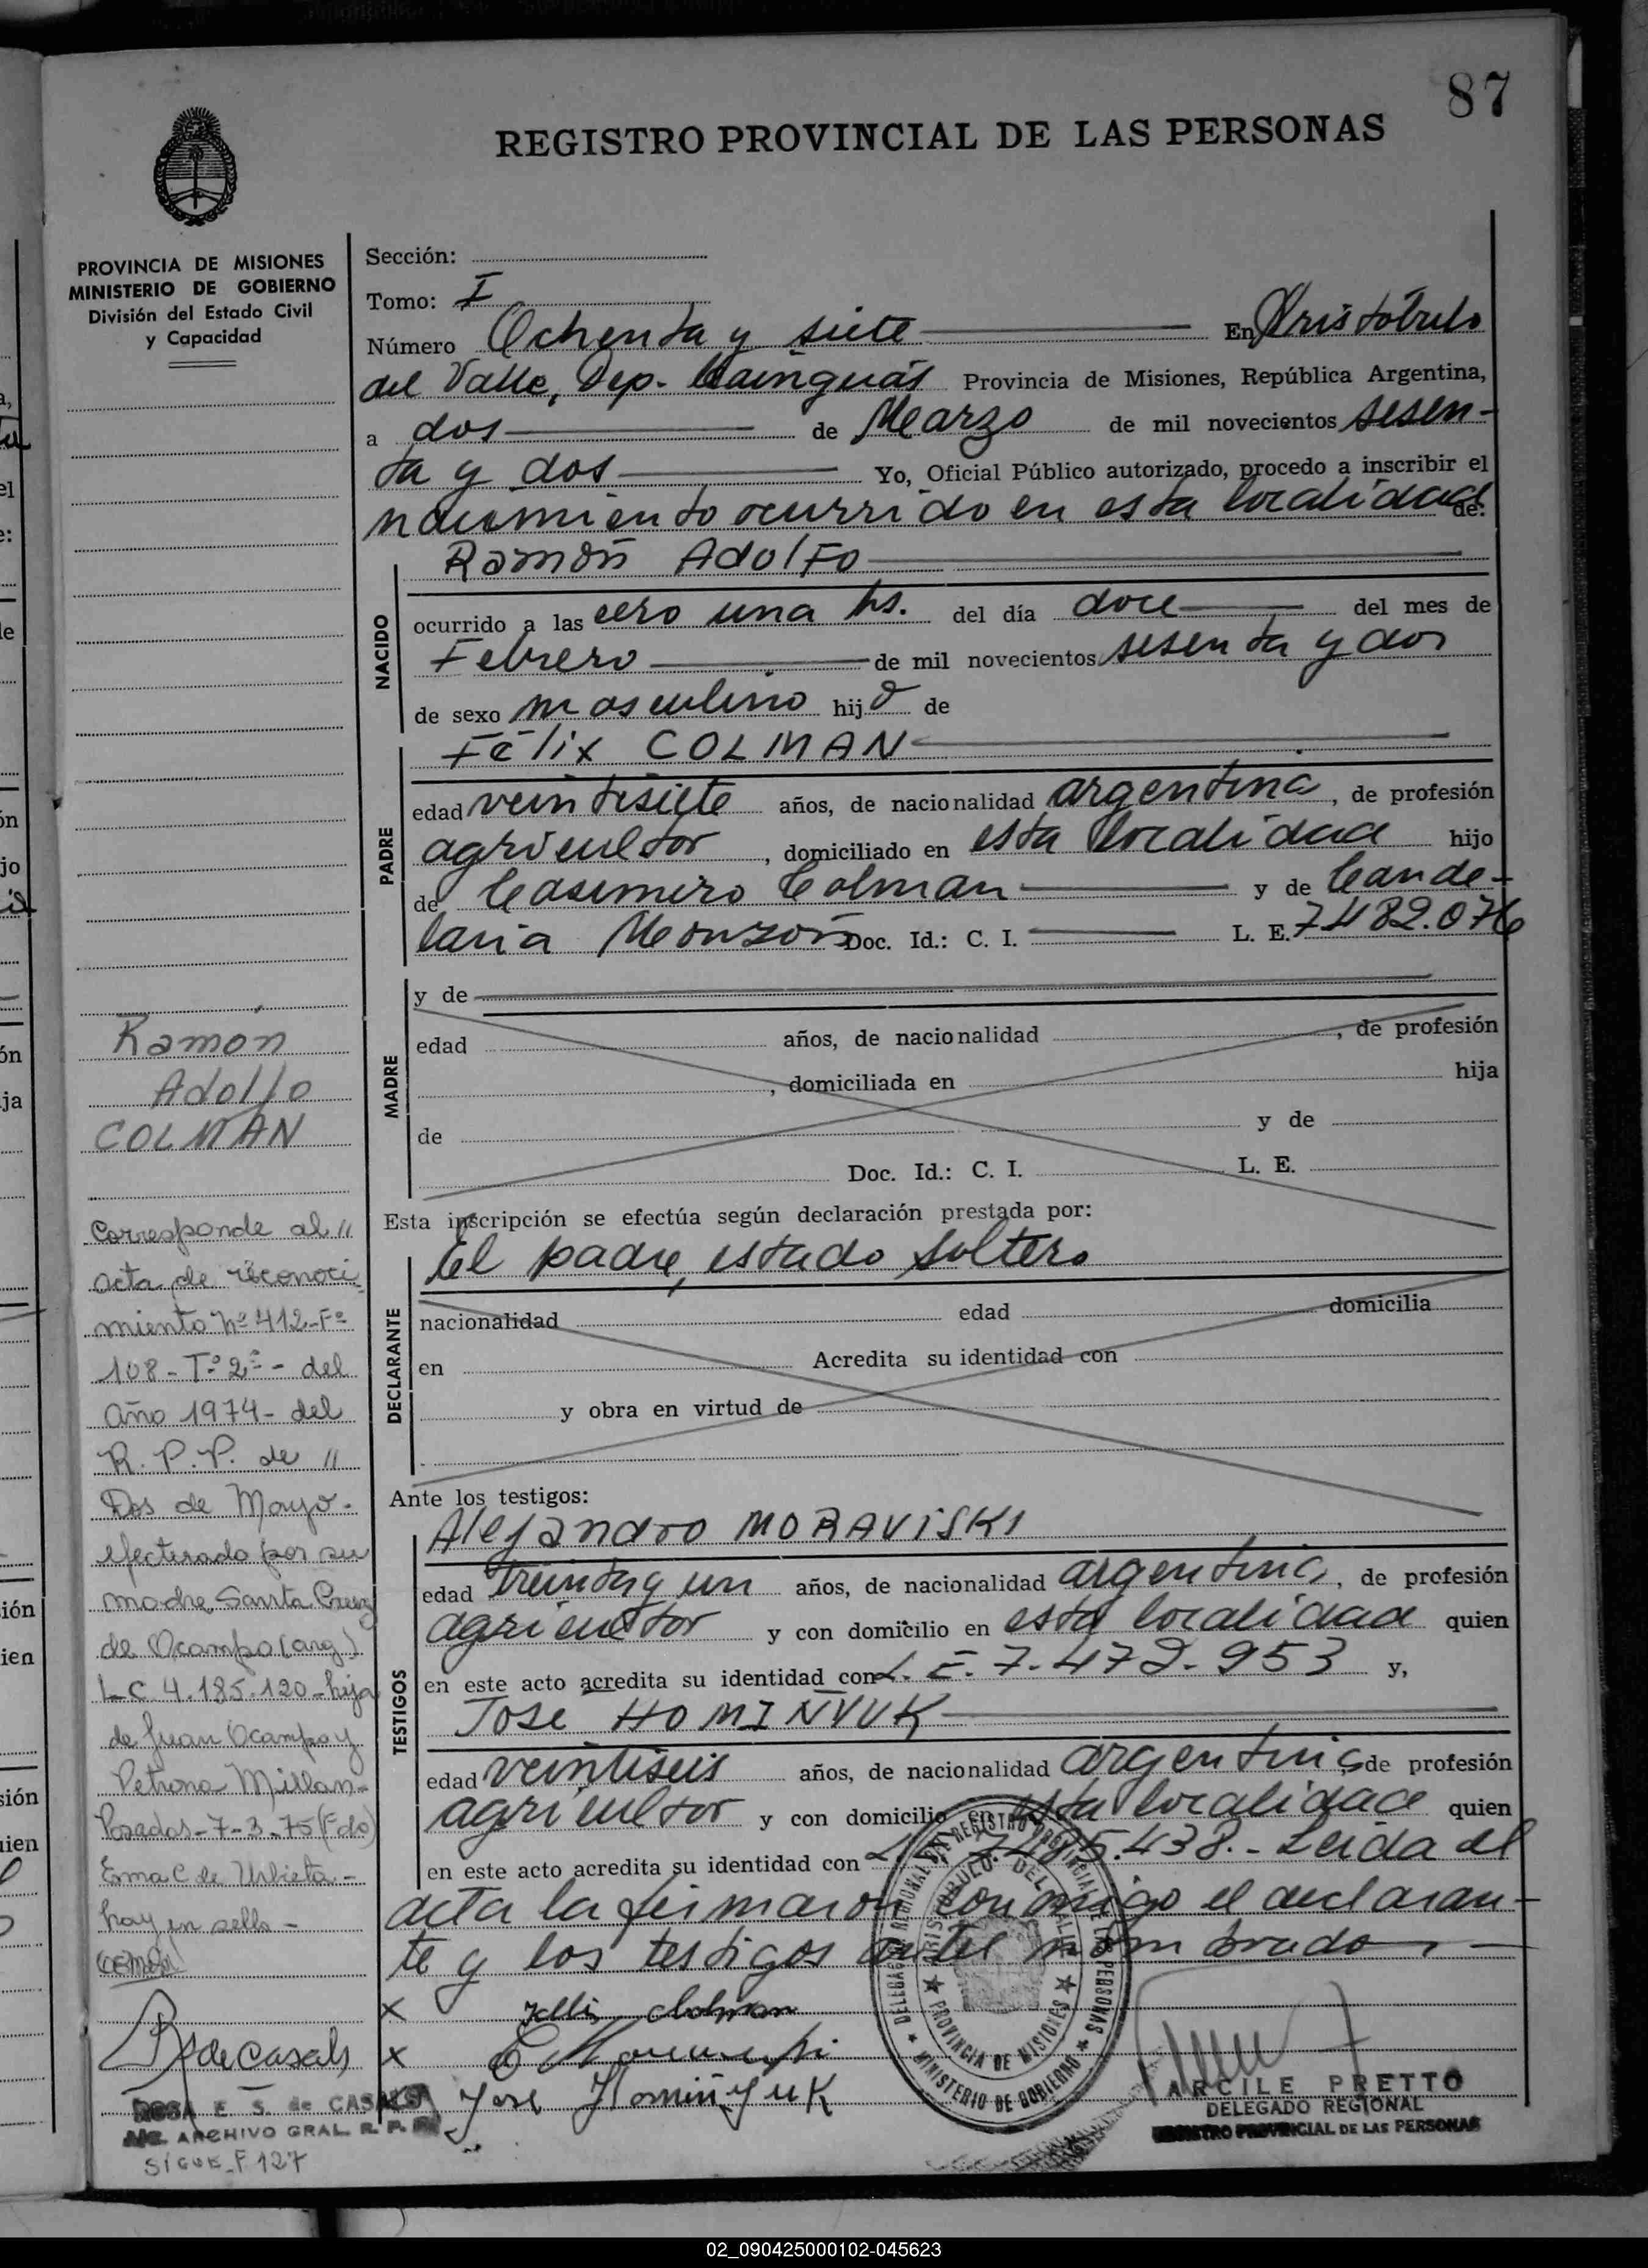 87
REGISTRO PROVINCIAL DE LAS PERSONAS
PROVINCIA DE MISIONES
MINISTERIO DE GOBIERNO
División del Estado Civil
y Capacidad
Sección:
Tomo: I
Número Ochenta y siete En Aristóbulo
del Valle, Dep. Cainguás Provincia de Misiones, República Argentina,
a dos de Marzo de mil novecientos sesen-
ta y dos Yo, Oficial Público autorizado, procedo a inscribir el
nacimiento ocurrido en esta localidad de:
NACIDO
Ramón Adolfo
ocurrido a las cero una hs. del día doce del mes de
Febrero de mil novecientos sesenta y dos
de sexo masculino hijo de
PADRE
Félix COLMAN
edad veintisiete años, de nacionalidad argentina, de profesión
agricultor, domiciliado en esta localidad hijo
de Casimiro Colman y de Cande-
laria Monzón Doc. Id.: C. I. L. E. 7.482.076
MADRE
y de
edad años, de nacionalidad , de profesión
, domiciliada en hija
de y de
Doc. Id.: C. I. L. E.
Esta inscripción se efectúa según declaración prestada por:
DECLARANTE
el padre, estado soltero
nacionalidad edad domicilia
en Acredita su identidad con
y obra en virtud de
Ante los testigos:
TESTIGOS
Alejandro MORAVISKI
edad treinta y un años, de nacionalidad argentina, de profesión
agricultor y con domicilio en esta localidad quien
en este acto acredita su identidad con L. E. 7.472.953 y,
José HOMIÑVUK
edad veintiseis años, de nacionalidad argentina, de profesión
agricultor y con domicilio en esta localidad quien
en este acto acredita su identidad con 5.438.- Leida el
acta la firmaron conmigo el declaran-
te y los testigos antes nombrados
x Felix Colman
x
José Homiñyuk
DELEGACION REGIONAL DEL REGISTRO PROVINCIAL DE LAS PERSONAS
MINISTERIO DE GOBIERNO
ARISTOBULO DEL VALLE
PROVINCIA DE MISIONES
ARCILE PRETTO
DELEGADO REGIONAL
REGISTRO PROVINCIAL DE LAS PERSONAS
Ramón
Adolfo
COLMAN
Corresponde al //
acta de reconoci
miento Nº 412-Fº
108-Tº 2º- del
año 1974- del
R. P. P. de //
Dos de Mayo-
efectuado por su
madre Santa Cruz
de Ocampo (arg.)
L.C 4.185.120-hija
de Juan Ocampo y
Petrona Millan-
Posadas-7-3-75 (Fdo)
Ema C de Urbieta-
hay un sello-
R S de Casals
ROSA E. S. de CASALS
ARCHIVO GRAL. R. P. P.
SIGUE-F 127
02_090425000102-045623